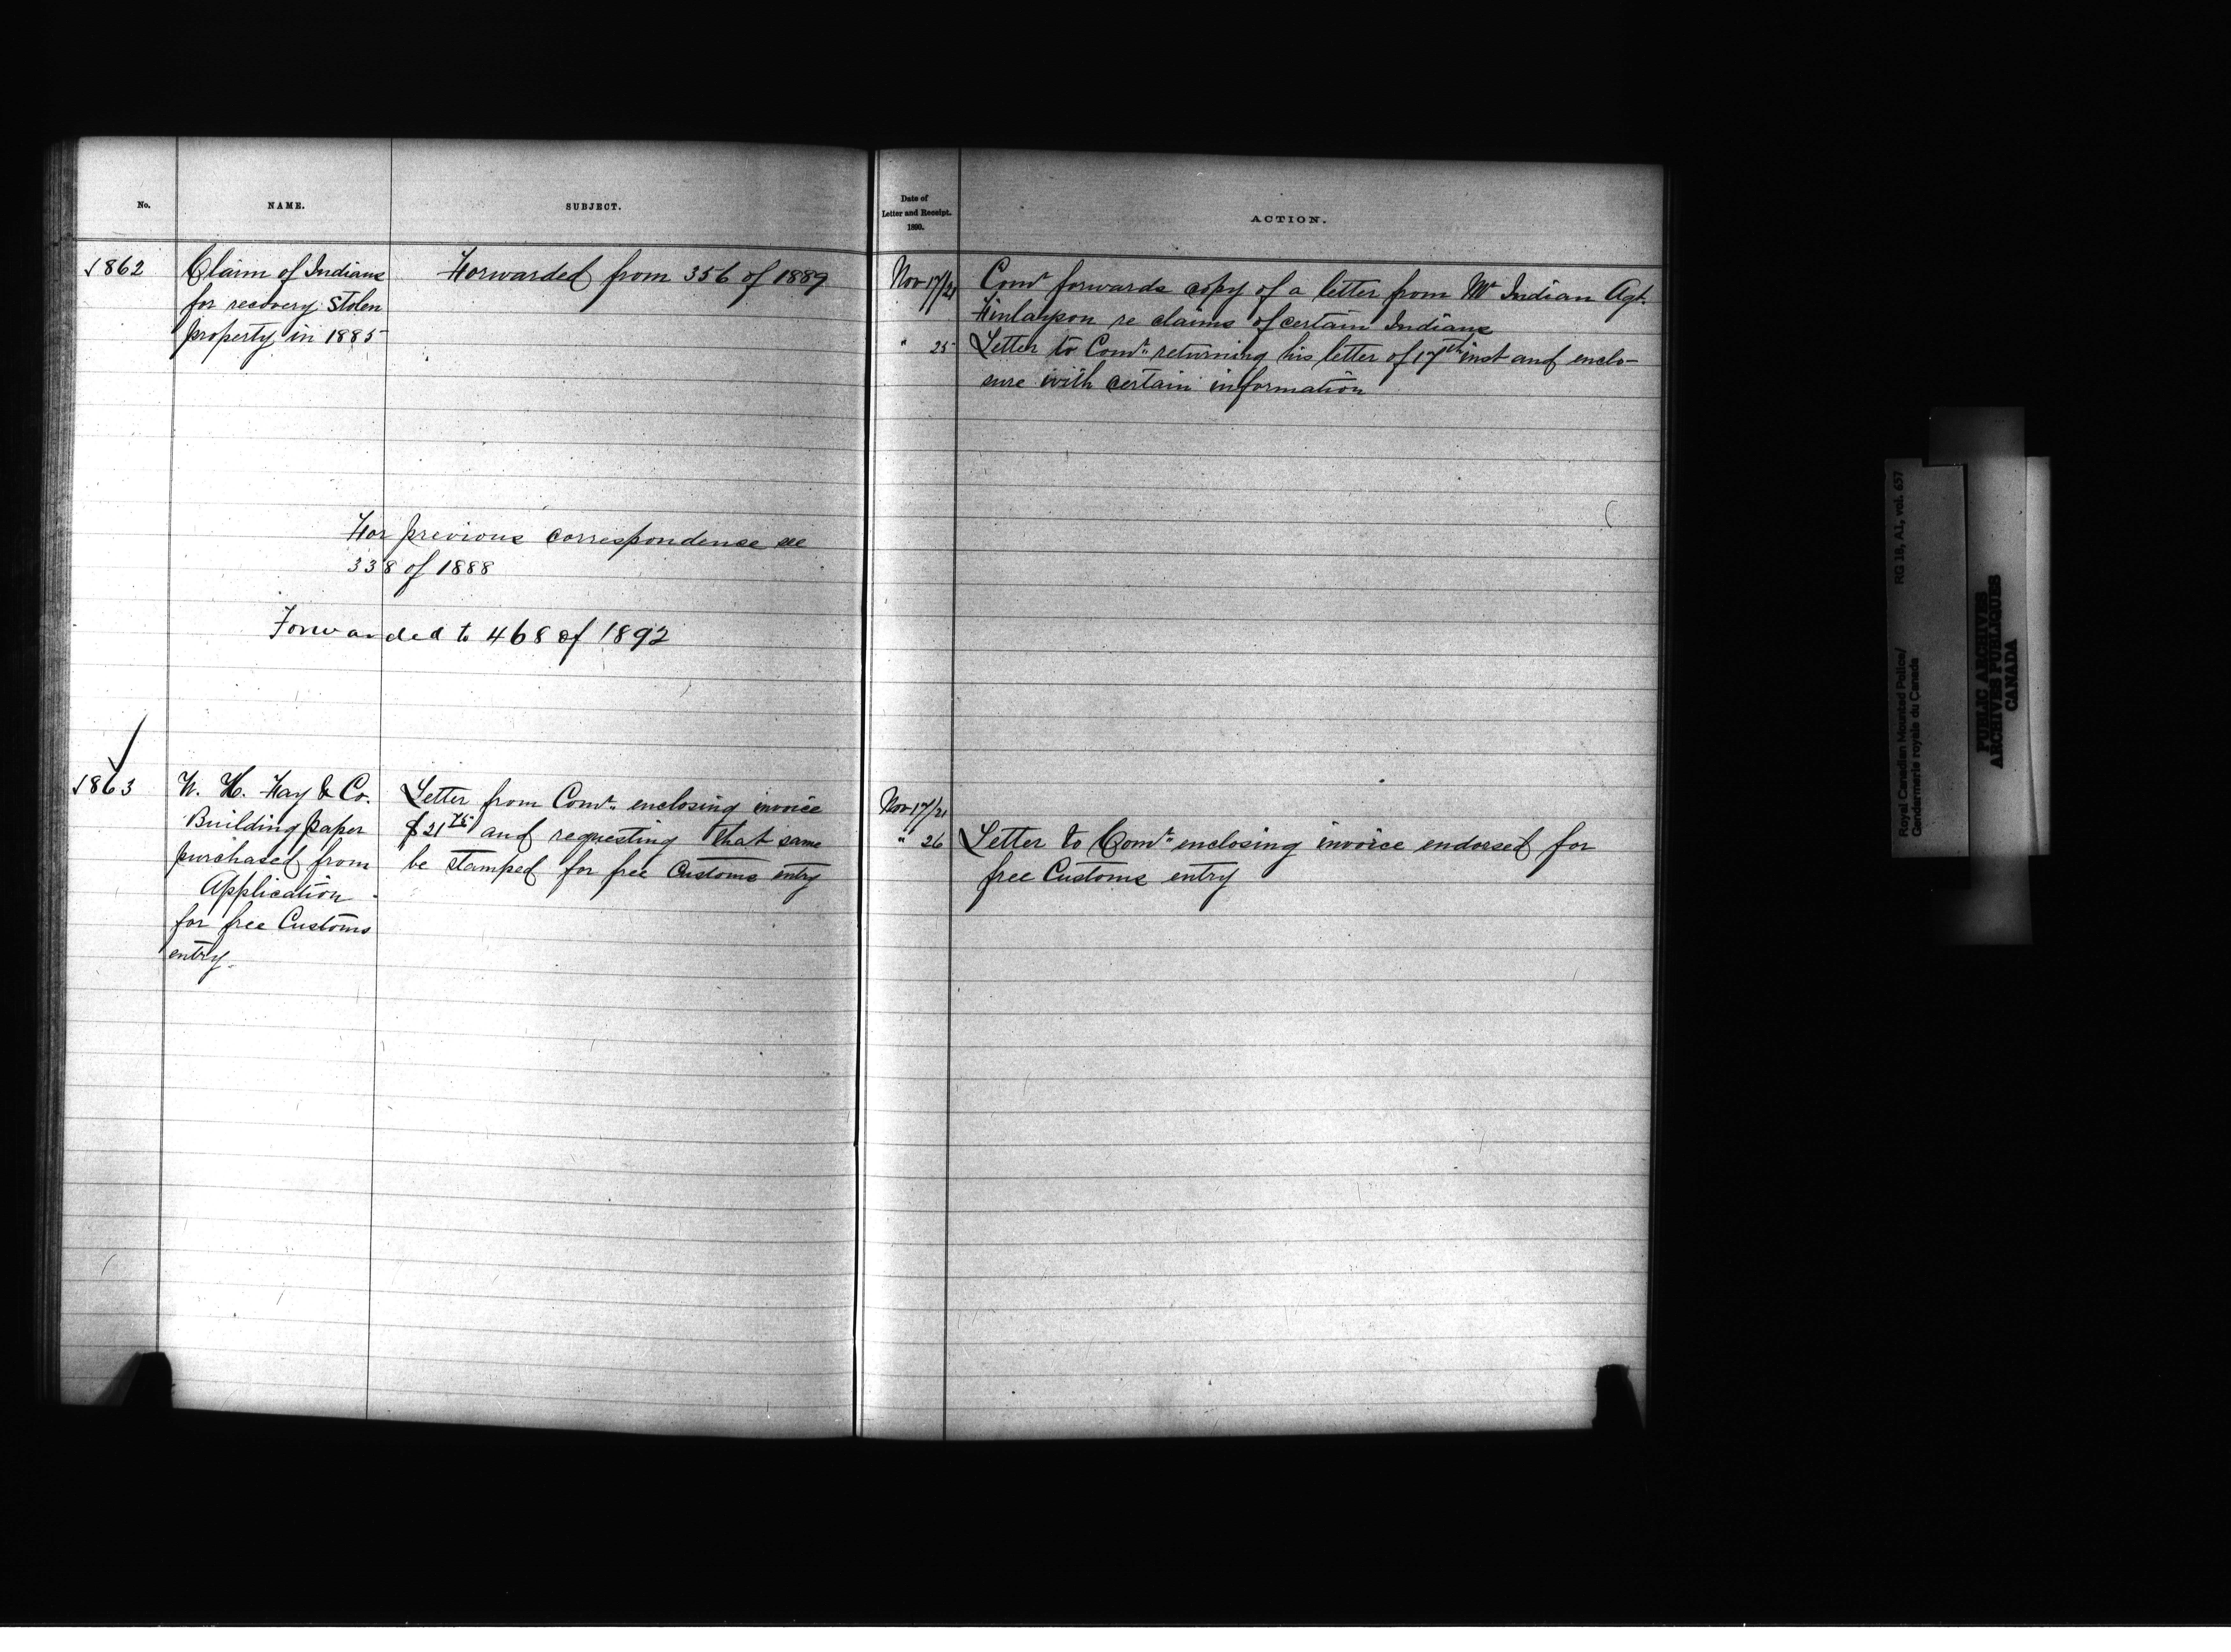 No.
NAME.
SUBJECT.
Date of
Letter and Receipt.
1890.
ACTION.
1862
Claim of Indians
for recovery stolen
property in 1885
Forwarded from 356 of 1889
For previous correspondence see
338 of 1888
Forwarded to 468 of 1892
Nov 17/21
Comr forwards copy of a letter from Mr Indian Agt.
Finlayson re claims of certain Indians
" 25
Letter to Comr. returning his letter of 17th inst and enclo-
sure with certain information
1863
W. H. Fay & Co.
Building paper
purchased from
Application
for free Customs
entry.
Letter from Comr. enclosing invoice
$21 75 and requesting that same
be stamped for free Customs entry
Nov 17/21
" 26
Letter to Comr. enclosing invoice endorsed for
free Customs entry
Royal Canadian Mounted Police/
Gendarmerie royale du Canada
RG 18, A1, vol. 637
PUBLIC ARCHIVES
ARCHIVES PUBLIQUES
CANADA